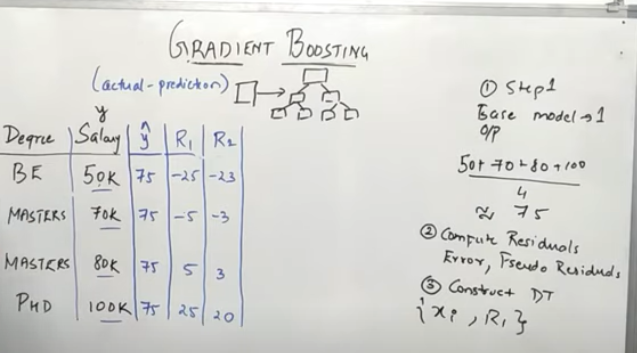 GRADIENT BOOSTING
(actual-prediction)
y
Degree Salary ŷ R₁ R₂
BE 50K 75 -25 -23
MASTERS 70K 75 -5 -3
MASTERS 80K 75 5 3
PHD 100K 75 25 20
① Step1
Base model → 1
O/P
50+70+80+100
4
≈ 75
② Compute Residuals
Error, Pseudo Residuals
③ Construct DT
{xi, R₁}